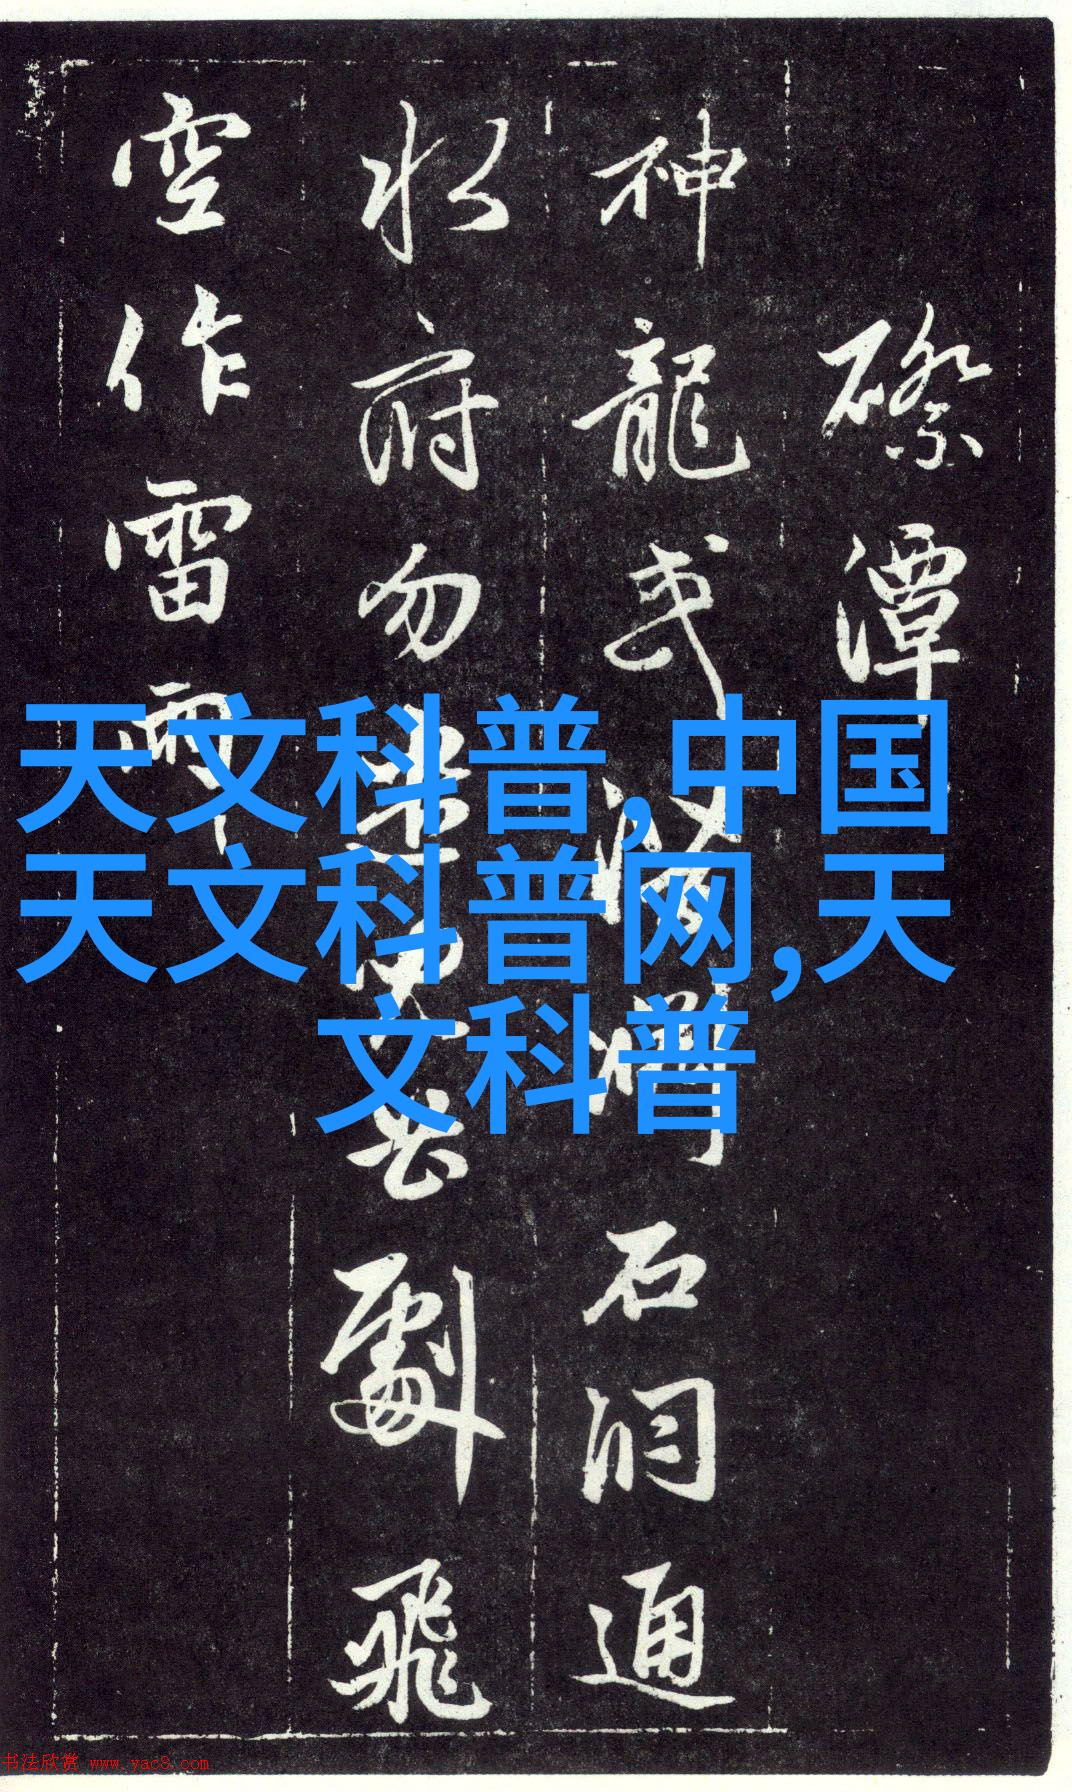 磜潭
神龍或石洞通
水府勿劇飛
空作雷雨
天文科普,中国
天文科普网,天
文科普
书法欣赏 www.yac8.com